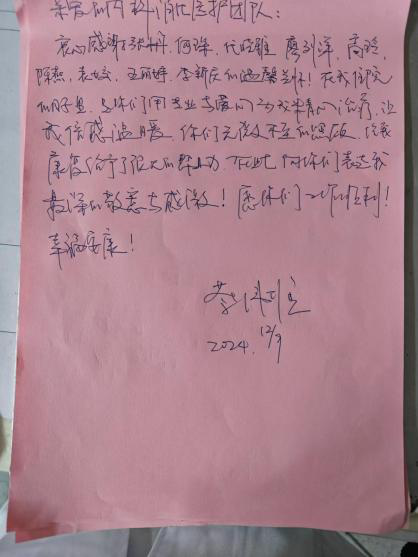 亲爱的内科消化医护团队：
衷心感谢张丹、何琛、代经维、廖烈洋、高玲、
陈燕、袁姣、王丽婷、李新庆的温馨关怀！在我住院
的日子里，是你们用专业与爱心为我来精心治疗，让
我倍感温暖。你们无微不至的照顾，给我
康复治疗了很大的帮助，在此，向你们表达我
最深的敬意与感激！愿你们工作顺利！
幸福安康！
2024.12/9